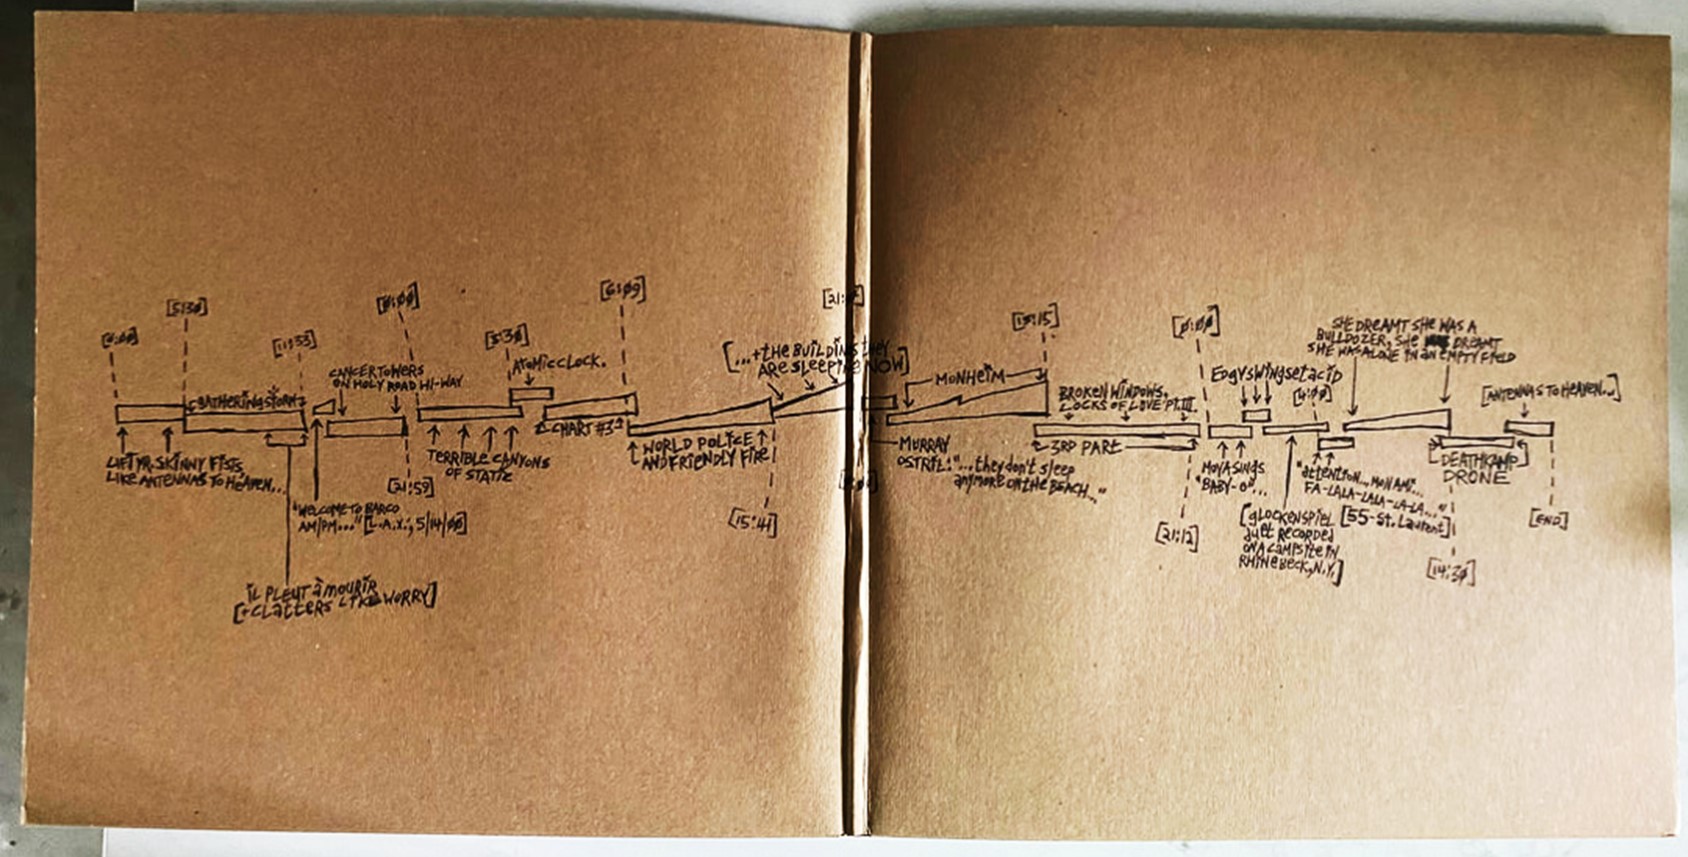 [0:00]
[5:30]
GATHERING STORM
[11:33]
LIFT YR. SKINNY FISTS,
LIKE ANTENNAS TO HEAVEN...
IL PLEUT À MOURIR
[+CLATTERS LIKE WORRY]
"WELCOME TO BARCO
AM/PM..." [L.A.X.; 5/14/00]
CANCER TOWERS
ON HOLY ROAD HI-WAY
[21:59]
[0:00]
TERRIBLE CANYONS
OF STATIC
[5:30]
ATOMIC CLOCK.
CHART #3
[6:09]
WORLD POLICE
AND FRIENDLY FIRE
[15:41]
[...+THE BUILDINGS THEY
ARE SLEEPING NOW]
[21:
MURRAY
OSTRIL: "...they don't sleep
anymore on the beach..."
MONHEIM
[13:15]
BROKEN WINDOWS,
LOCKS OF LOVE PT. III.
3RD PART
[21:12]
[0:00]
MOYA SINGS
"BABY-O"...
EDGYSWINGSETACID
[4:00]
[GLOCKENSPIEL
DUET RECORDED
ON A CAMPSITE IN
RHINEBECK, N.Y.]
"ATTENTION... MON AMI...
FA-LALA-LALA-LA-LA..."
[55-St. Laurent]
SHE DREAMT SHE WAS A
BULLDOZER, SHE DREAMT
SHE WAS ALONE IN AN EMPTY FIELD
DEATHKAMP
DRONE
[14:30]
[ANTENNAS TO HEAVEN...]
[END]